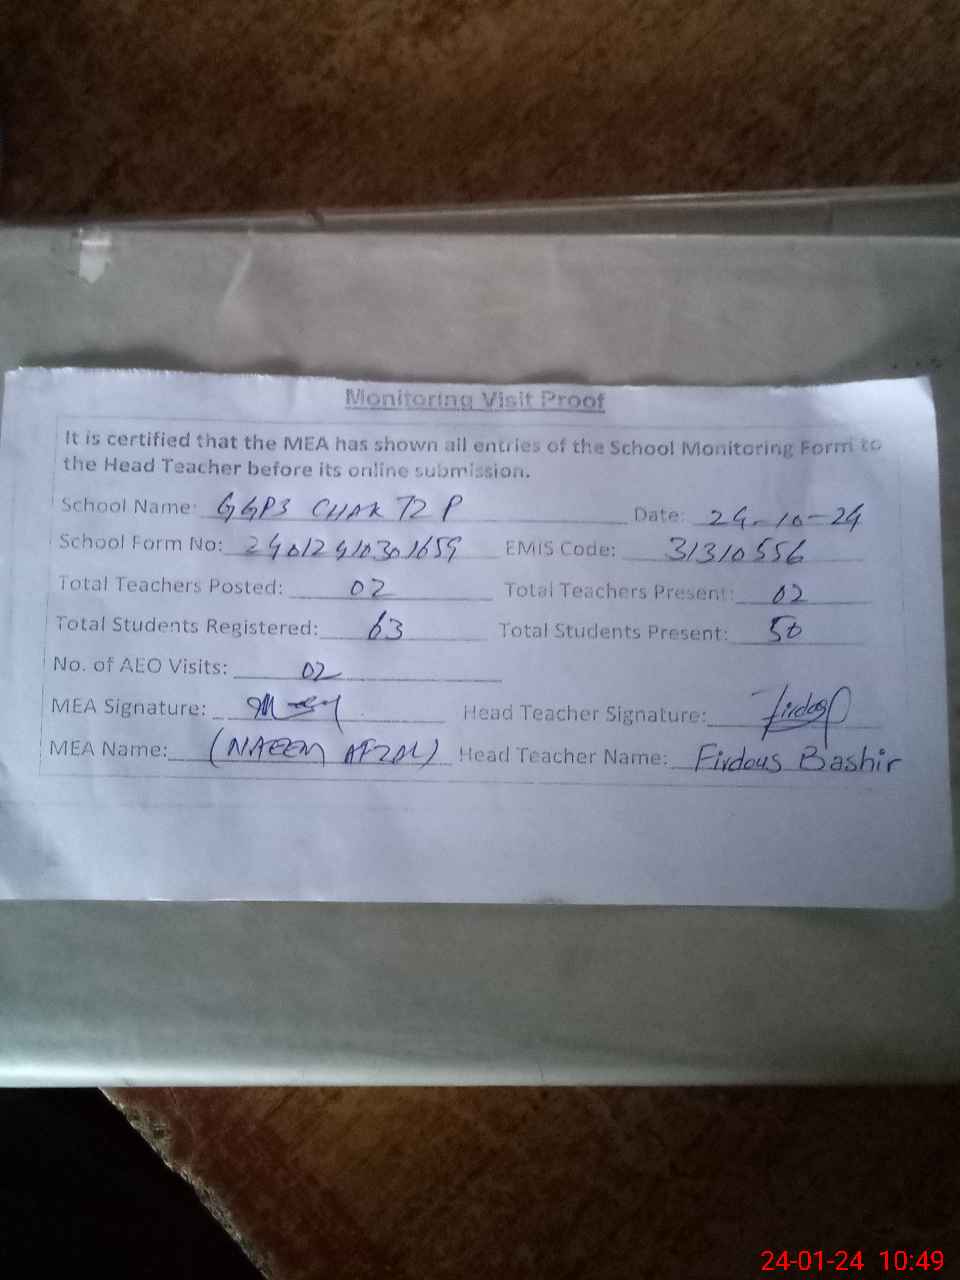 Monitoring Visit Proof
It is certified that the MEA has shown all entries of the School Monitoring Form to
the Head Teacher before its online submission.
School Name: GGPS CHAK 72 P Date: 24-10-24
School Form No: EMIS Code: 31310556
Total Teachers Posted: 02 Total Teachers Present: 02
Total Students Registered: 63 Total Students Present: 50
No. of AEO Visits: 02
MEA Signature: Head Teacher Signature: Firdos
MEA Name: (NAEEM AFZAL) Head Teacher Name: Firdous Bashir
24-01-24 10:49